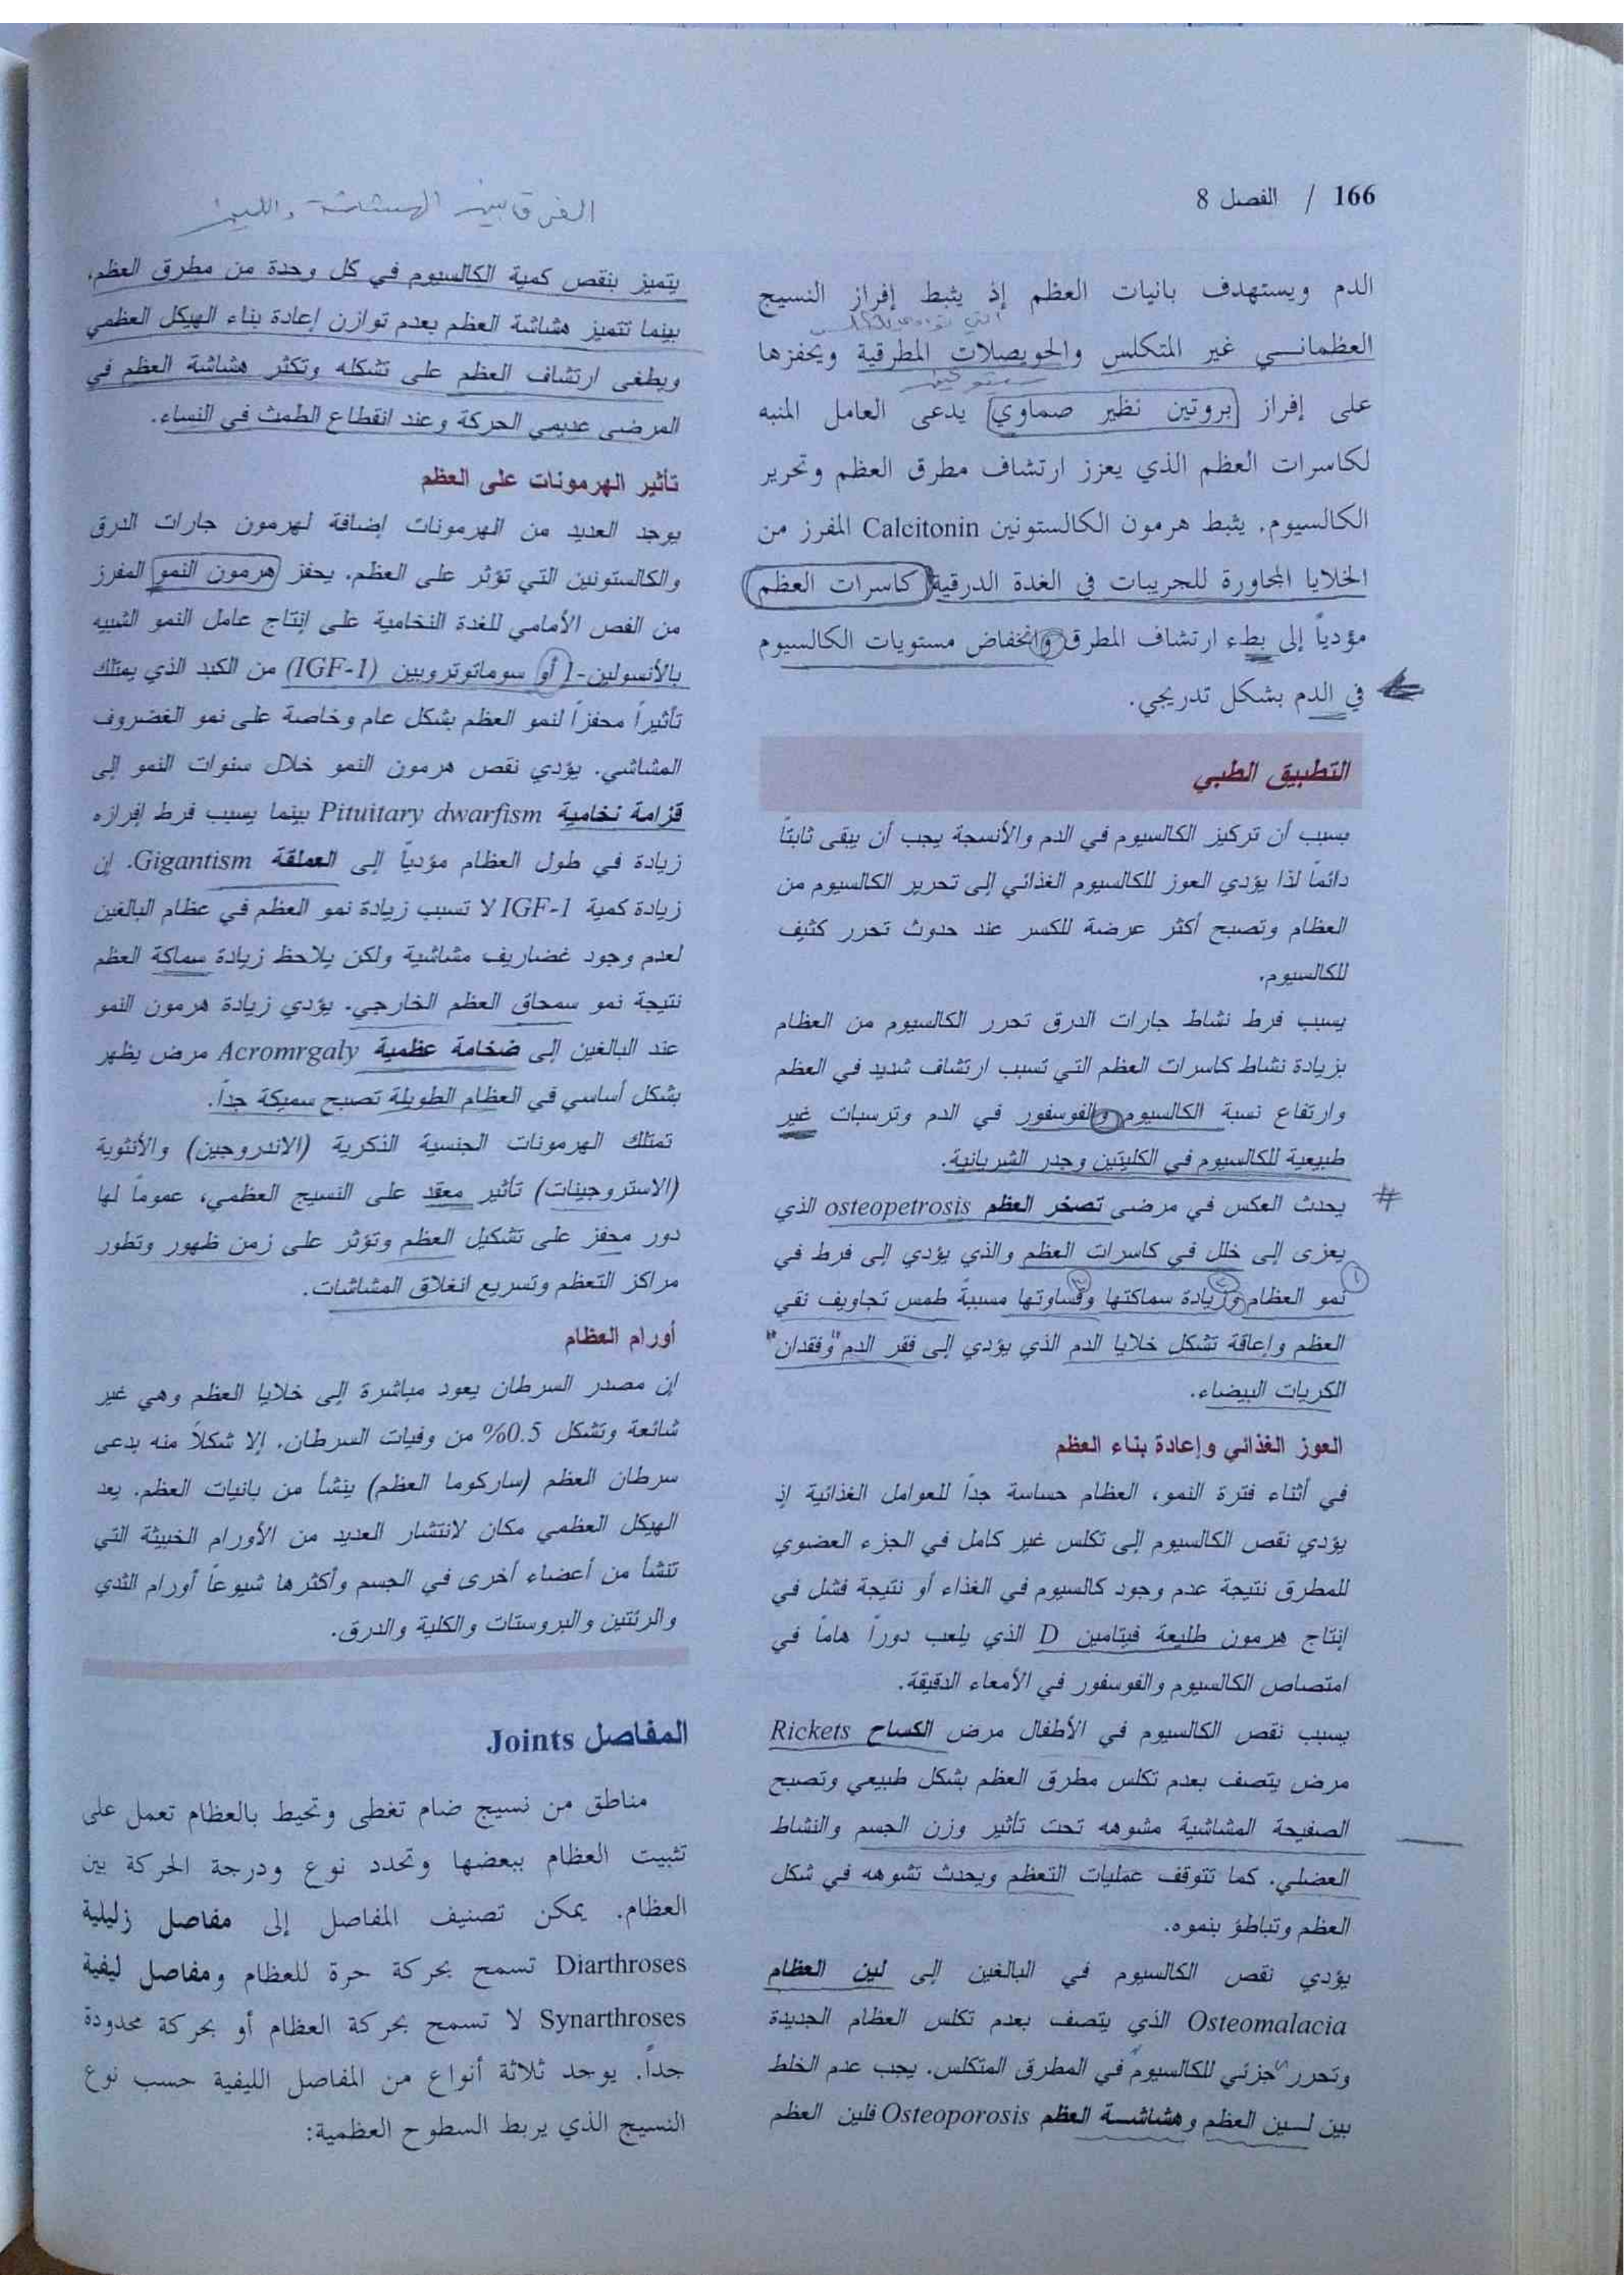 166 / الفصل 8
الدم ويستهدف بانيات العظم إذ يثبط إفراز النسيج
العظمانـــي غير المتكلس والحويصلات المطرقية ويحفزها
على إفراز بروتين نظير صماوي يدعى العامل المنبه
لكاسرات العظم الذي يعزز ارتشاف مطرق العظم وتحرير
الكالسيوم. يثبط هرمون الكالستونين Calcitonin المفرز من
الخلايا المجاورة للجريبات في الغدة الدرقية كاسرات العظم
مؤدياً إلى بطء ارتشاف المطرق وانخفاض مستويات الكالسيوم
في الدم بشكل تدريجي.
التطبيق الطبي
بسبب أن تركيز الكالسيوم في الدم والأنسجة يجب أن يبقى ثابتاً
دائماً لذا يؤدي العوز للكالسيوم الغذائي إلى تحرير الكالسيوم من
العظام وتصبح أكثر عرضة للكسر عند حدوث تحرر كثيف
للكالسيوم.
يسبب فرط نشاط جارات الدرق تحرر الكالسيوم من العظام
بزيادة نشاط كاسرات العظم التي تسبب ارتشاف شديد في العظم
وارتفاع نسبة الكالسيوم والفوسفور في الدم وترسبات غير
طبيعية للكالسيوم في الكليتين وجدر الشريانية.
يحدث العكس في مرضى تصخر العظم osteopetrosis الذي
يعزى إلى خلل في كاسرات العظم والذي يؤدي إلى فرط في
نمو العظام وزيادة سماكتها وقساوتها مسببة طمس تجاويف نقي
العظم وإعاقة تشكل خلايا الدم الذي يؤدي إلى فقر الدم "وفقدان"
الكريات البيضاء.
العوز الغذائي وإعادة بناء العظم
في أثناء فترة النمو، العظام حساسة جداً للعوامل الغذائية إذ
يؤدي نقص الكالسيوم إلى تكلس غير كامل في الجزء العضوي
للمطرق نتيجة عدم وجود كالسيوم في الغذاء أو نتيجة فشل في
إنتاج هرمون طليعة فيتامين D الذي يلعب دوراً هاماً في
امتصاص الكالسيوم والفوسفور في الأمعاء الدقيقة.
يسبب نقص الكالسيوم في الأطفال مرض الكساح Rickets
مرض يتصف بعدم تكلس مطرق العظم بشكل طبيعي وتصبح
الصفيحة المشاشية مشوهه تحت تأثير وزن الجسم والنشاط
العضلي. كما تتوقف عمليات التعظم ويحدث تشوهه في شكل
العظم وتباطؤ بنموه.
يؤدي نقص الكالسيوم في البالغين إلى لين العظام
Osteomalacia الذي يتصف بعدم تكلس العظام الجديدة
وتحرر جزئي للكالسيوم في المطرق المتكلس. يجب عدم الخلط
بين لـــين العظم وهشاشـــة العظم Osteoporosis فلين العظم
الفرق بين الهشاشة واللين
يتميز بنقص كمية الكالسيوم في كل وحدة من مطرق العظم،
بينما تتميز هشاشة العظم بعدم توازن إعادة بناء الهيكل العظمي
ويطغى ارتشاف العظم على تشكله وتكثر هشاشة العظم في
المرضى عديمي الحركة وعند انقطاع الطمث في النساء.
تأثير الهرمونات على العظم
يوجد العديد من الهرمونات إضافة لهرمون جارات الدرق
والكالستونين التي تؤثر على العظم. يحفز هرمون النمو المفرز
من الفص الأمامي للغدة النخامية على إنتاج عامل النمو الشبيه
بالأنسولين-1 أو سوماتوتروبين (IGF-1) من الكبد الذي يمتلك
تأثيراً محفزاً لنمو العظم بشكل عام وخاصة على نمو الغضروف
المشاشي. يؤدي نقص هرمون النمو خلال سنوات النمو إلى
قزامة نخامية Pituitary dwarfism بينما يسبب فرط إفرازه
زيادة في طول العظام مؤدياً إلى العملقة Gigantism. إن
زيادة كمية IGF-1 لا تسبب زيادة نمو العظم في عظام البالغين
لعدم وجود غضاريف مشاشية ولكن يلاحظ زيادة سماكة العظم
نتيجة نمو سمحاق العظم الخارجي. يؤدي زيادة هرمون النمو
عند البالغين إلى ضخامة عظمية Acromrgaly مرض يظهر
بشكل أساسي في العظام الطويلة تصبح سميكة جداً.
تمتلك الهرمونات الجنسية الذكرية (الاندروجين) والأنثوية
(الاستروجينات) تأثير معقد على النسيج العظمي، عموماً لها
دور محفز على تشكيل العظم وتؤثر على زمن ظهور وتطور
مراكز التعظم وتسريع انغلاق المشاشات.
أورام العظام
إن مصدر السرطان يعود مباشرة إلى خلايا العظم وهي غير
شائعة وتشكل 0.5% من وفيات السرطان. إلا شكلاً منه يدعى
سرطان العظم (ساركوما العظم) ينشأ من بانيات العظم. يعد
الهيكل العظمي مكان لانتشار العديد من الأورام الخبيثة التي
تنشأ من أعضاء أخرى في الجسم وأكثرها شيوعاً أورام الثدي
والرئتين والبروستات والكلية والدرق.
المفاصل Joints
مناطق من نسيج ضام تغطى وتحيط بالعظام تعمل على
تثبيت العظام ببعضها وتحدد نوع ودرجة الحركة بين
العظام. يمكن تصنيف المفاصل إلى مفاصل زليلية
Diarthroses تسمح بحركة حرة للعظام ومفاصل ليفية
Synarthroses لا تسمح بحركة العظام أو بحركة محدودة
جداً. يوجد ثلاثة أنواع من المفاصل الليفية حسب نوع
النسيج الذي يربط السطوح العظمية: